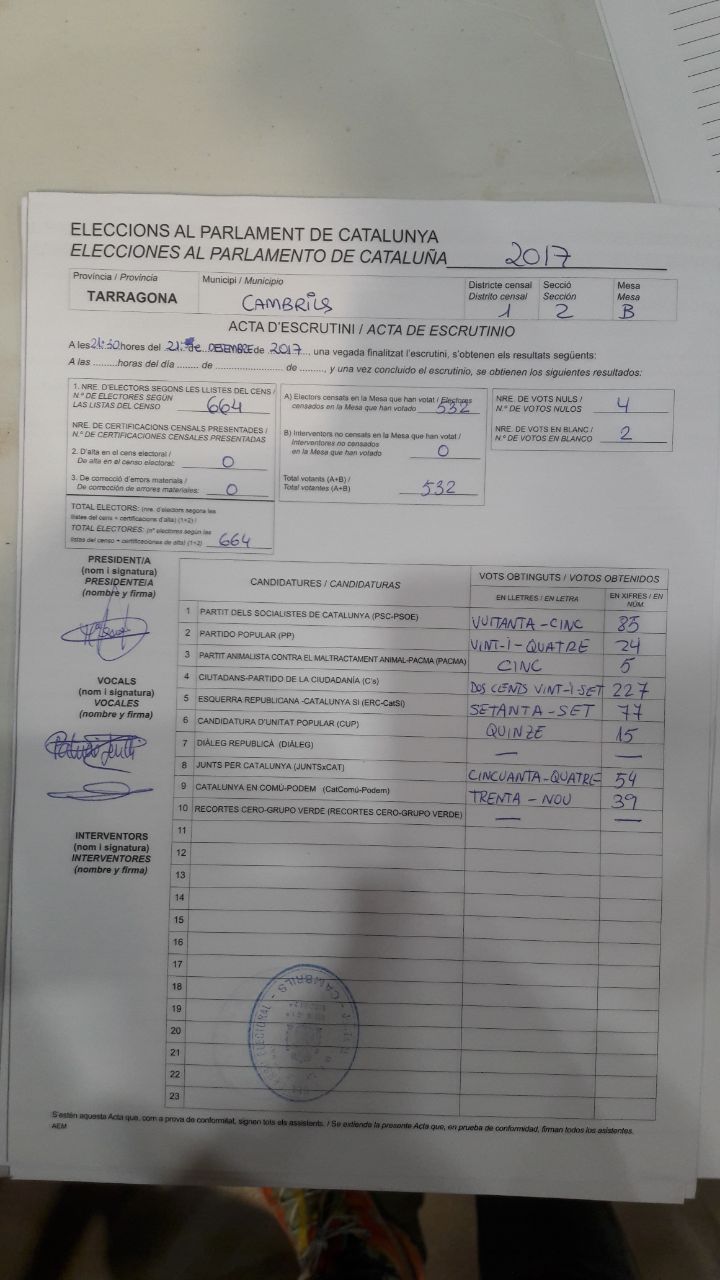 ELECCIONS AL PARLAMENT DE CATALUNYA
ELECCIONES AL PARLAMENTO DE CATALUÑA 2017
Provincia / Provincia
TARRAGONA
Municipi / Municipio
CAMBRILS
Districte censal
Distrito censal
1
Secció
Sección
2
Mesa
Mesa
B
ACTA D'ESCRUTINI / ACTA DE ESCRUTINIO
A les 21:50 hores del 21 de DESEMBRE de 2017, una vegada finalitzat l'escrutini, s'obtenen els resultats següents:
A las .........horas del día ....... de ........................ de ........, y una vez concluido el escrutinio, se obtienen los siguientes resultados:
1. NRE. D'ELECTORS SEGONS LES LLISTES DEL CENS /
N.º DE ELECTORES SEGÚN
LAS LISTAS DEL CENSO 664
NRE. DE CERTIFICACIONS CENSALS PRESENTADES /
N.º DE CERTIFICACIONES CENSALES PRESENTADAS
2. D'alta en el cens electoral /
De alta en el censo electoral: 0
3. De correcció d'errors materials /
De corrección de errores materiales: 0
TOTAL ELECTORS: (nre. d'electors segons les
llistes del cens + certificacions d'alta) (1+2) /
TOTAL ELECTORES: (nº electores según las
listas del censo + certificaciones de alta) (1+2) 664
A) Electors censats en la Mesa que han votat / Electores
censados en la Mesa que han votado 532
B) Interventors no censats en la Mesa que han votat /
Interventores no censados
en la Mesa que han votado 0
Total votants (A+B) /
Total votantes (A+B) 532
NRE. DE VOTS NULS /
N.º DE VOTOS NULOS 4
NRE. DE VOTS EN BLANC /
N.º DE VOTOS EN BLANCO 2
PRESIDENT/A
(nom i signatura)
PRESIDENTE/A
(nombre y firma)
VOCALS
(nom i signatura)
VOCALES
(nombre y firma)
INTERVENTORS
(nom i signatura)
INTERVENTORES
(nombre y firma)
CANDIDATURES / CANDIDATURAS
VOTS OBTINGUTS / VOTOS OBTENIDOS
EN LLETRES / EN LETRA
EN XIFRES / EN NÚM.
1 PARTIT DELS SOCIALISTES DE CATALUNYA (PSC-PSOE) VUITANTA-CINC 85
2 PARTIDO POPULAR (PP) VINT-I-QUATRE 24
3 PARTIT ANIMALISTA CONTRA EL MALTRACTAMENT ANIMAL-PACMA (PACMA) CINC 5
4 CIUTADANS-PARTIDO DE LA CIUDADANÍA (C's) DOS CENTS VINT-I-SET 227
5 ESQUERRA REPUBLICANA -CATALUNYA SI (ERC-CatSí) SETANTA-SET 77
6 CANDIDATURA D'UNITAT POPULAR (CUP) QUINZE 15
7 DIÀLEG REPUBLICÀ (DIÀLEG) — —
8 JUNTS PER CATALUNYA (JUNTSxCAT) CINCUANTA-QUATRE 54
9 CATALUNYA EN COMÚ-PODEM (CatComú-Podem) TRENTA-NOU 39
10 RECORTES CERO-GRUPO VERDE (RECORTES CERO-GRUPO VERDE) — —
11
12
13
14
15
16
17
18
19
20
21
22
23
CAMBRILS
S'estén aquesta Acta que, com a prova de conformitat, signen tots els assistents. / Se extiende la presente Acta que, en prueba de conformidad, firman todos los asistentes.
AEM